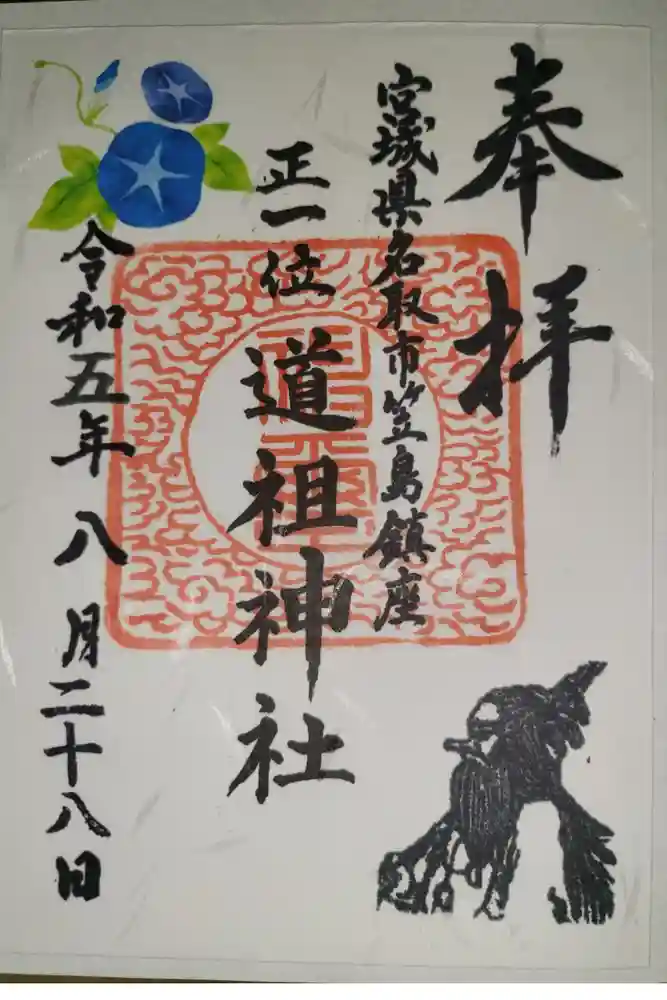 奉拝
宮城県名取市笠島鎮座
正一位 道祖神社
令和五年八月二十八日